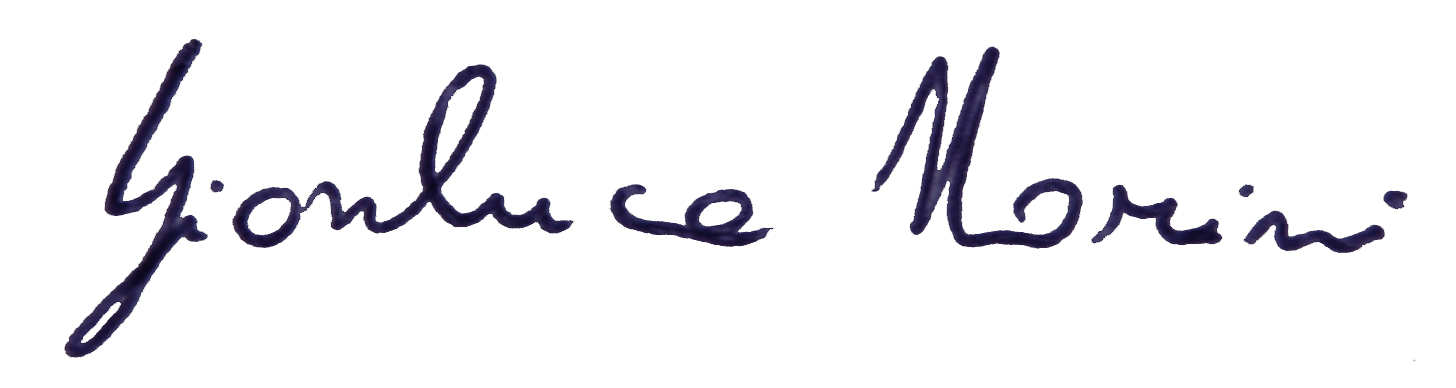 Gianluca Morini